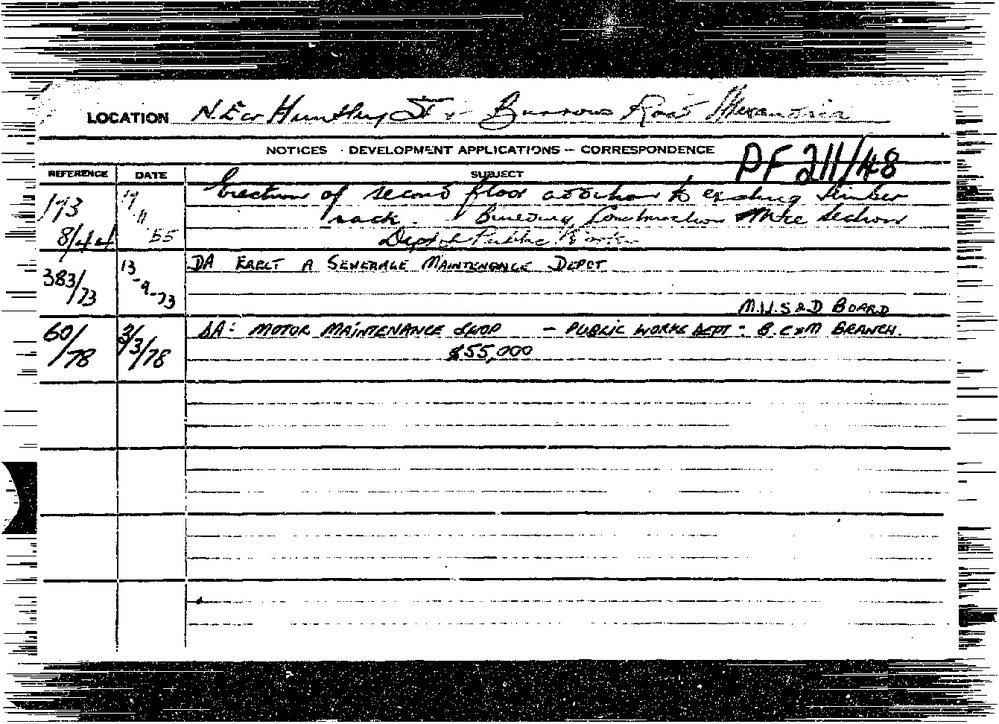 LOCATION N.E cr Huntley St & Burrows Road Alexandria
NOTICES - DEVELOPMENT APPLICATIONS - CORRESPONDENCE
PF 211/48
REFERENCE DATE SUBJECT
193 8/44 19 11 55 Erection of second floor addition to existing timber
rack. Building Construction Mtce Section
Dept of Public Works
383/73 13-9-73 DA ERECT A SEWERAGE MAINTENANCE DEPOT
M.W.S & D BOARD
60/78 2/3/78 DA: MOTOR MAINTENANCE SHOP - PUBLIC WORKS DEPT - B.C & M BRANCH.
$55,000